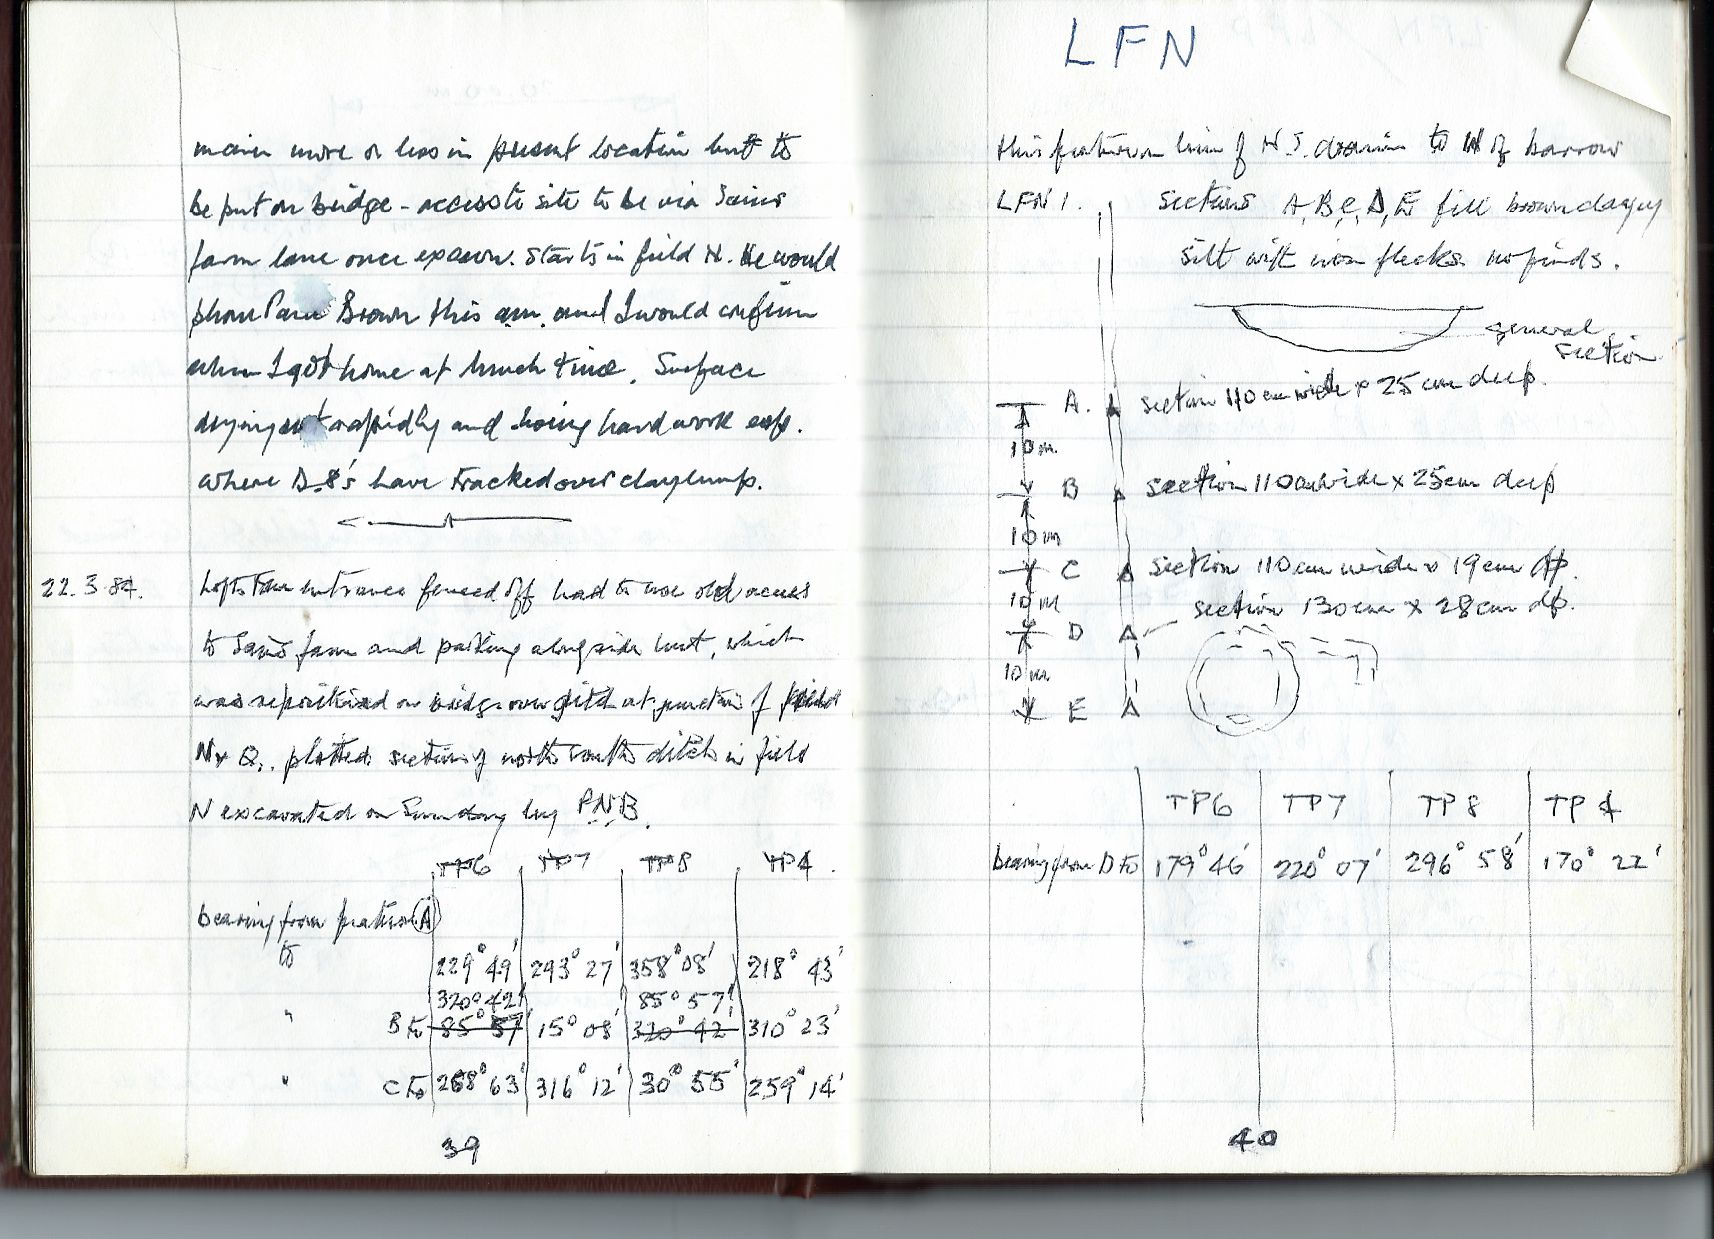 main more or less in present location but to
be put on bridge - access to site to be via Sains
farm lane once expawn. Starts in field N. He would
phone Paul Brown this am. and I would confirm
when I got home at lunch time. Surface
drying out rapidly and hoeing hard work esp.
where D.8's have tracked over clay lump.
22.3.84. Lofts Farm entrance fenced off had to use old access
to Sains farm and parking alongside hut, which
was repositioned on bridge over ditch at junction of field
N & Q. plotted section of north south ditch in field
N excavated on Sunday by P.N.B.
TP6 TP7 TP8 TP4.
bearing from A
to
229° 49' 293° 27' 358° 08' 218° 43'
320° 42' 85° 57'
" B to 85° 57' 15° 08' 320° 42' 310° 23'
" C to 268° 63' 316° 12' 30° 55' 259° 14'
39
LFN
this feature on line of N.S. drain to N of barrow
LFN 1. sections A, B, C, D, E fill brown clayey
silt with iron flecks no finds.
general
section
A. section 110 cm wide x 25 cm deep.
10m.
B section 110cm wide x 25cm deep
10m
C section 110cm wide x 19cm dp.
10m
section 130cm x 28cm dp.
D
10m
E
TP6 TP7 TP8 TP4
bearing from D to 179° 46' 220° 07' 296° 58' 170° 22'
40